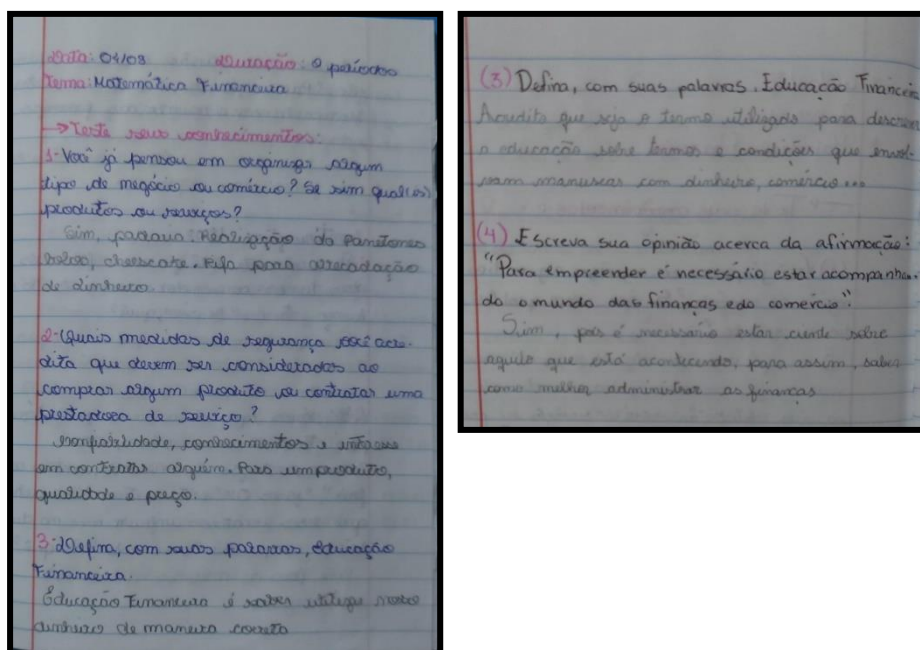 Data: 04/03 Duração: 2 períodos
Tema: Matemática Financeira
→ Teste seus conhecimentos:
1- Você já pensou em organizar algum
tipo de negócio ou comércio? Se sim qual(is)
produtos ou serviços?
Sim, padaria. Realização de Panetones
cheescake. Rifa para arrecadação
de dinheiro.
2- Quais medidas de segurança você acre-
dita que devem ser considerados ao
comprar algum produto ou contratar uma
prestadora de serviço?
conhecimentos e
em contratar alguém. Para um produto,
qualidade e preço.
3- Defina, com suas palavras, educação
Financeira.
Educação Financeira é saber nosso
dinheiro de maneira correta
(3) Defina, com suas palavras, Educação Financei
Acredito que seja o termo utilizado para descrev
a educação sobre termos e condições que envol-
vam manuscas com dinheiro, comércio...
(4) Escreva sua opinião acerca da afirmação:
"Para empreender é necessário estar acompanhan-
do o mundo das finanças e do comércio".
Sim, pois é necessário estar ciente sobre
aquilo que está acontecendo, para assim, saber
como melhor administrar as finanças